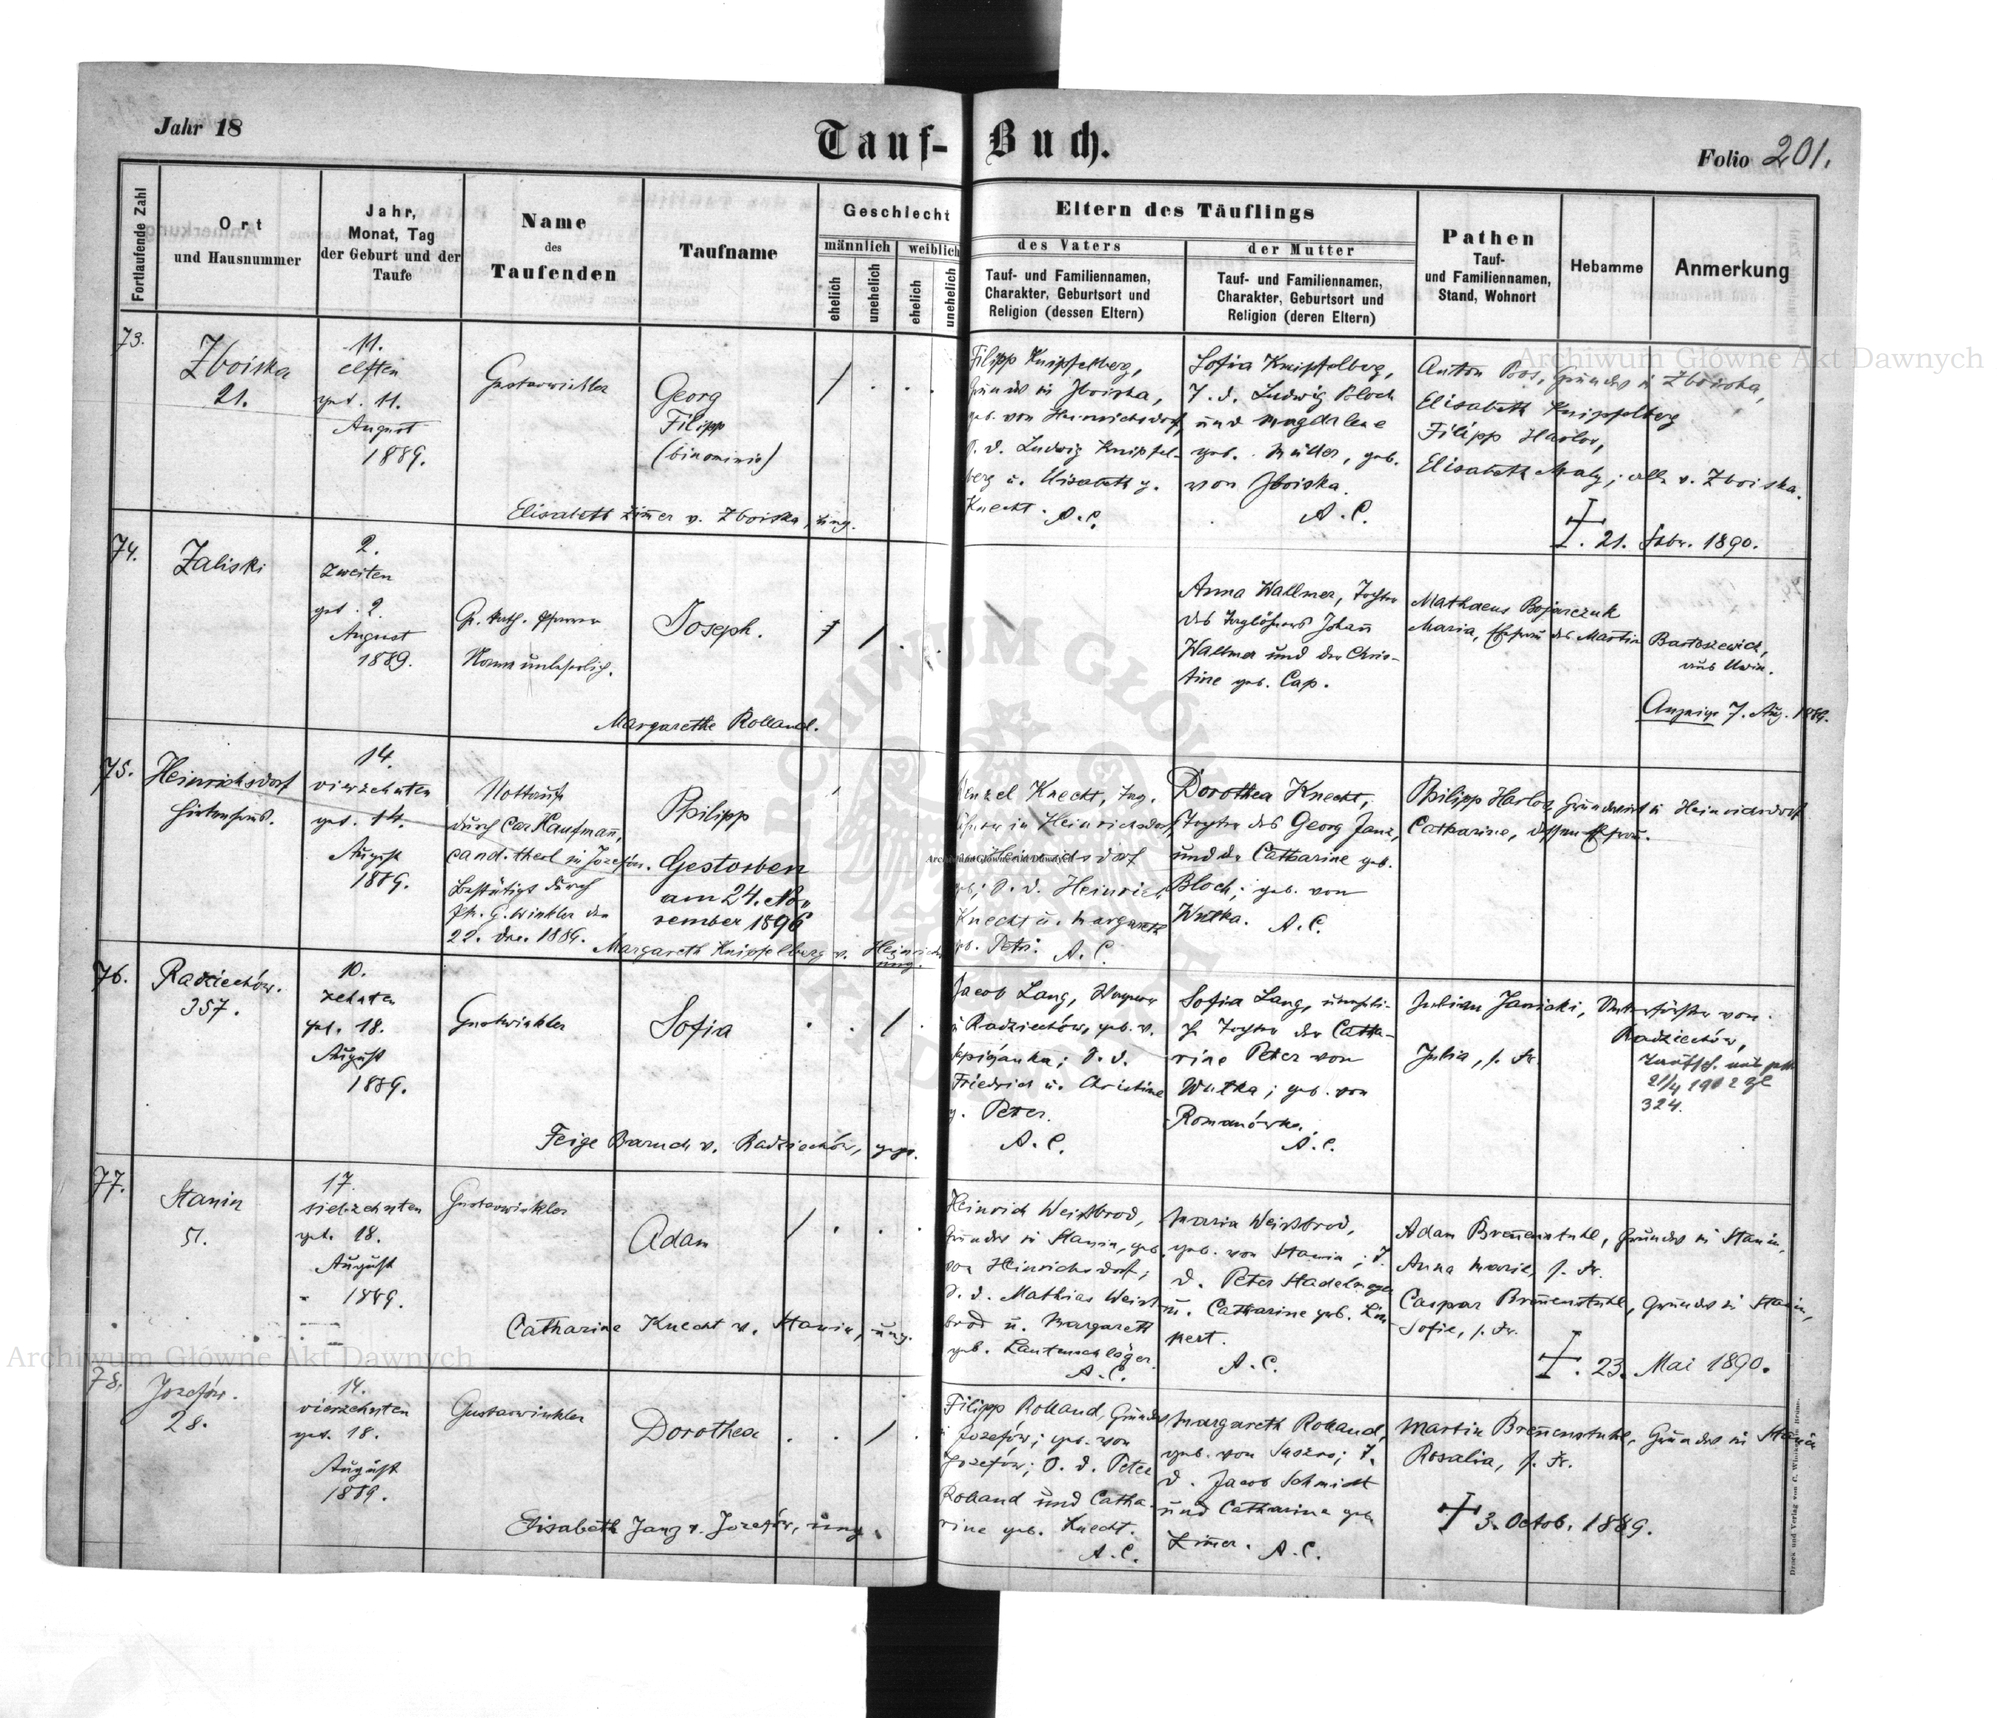 Jahr 18
Tauf-Buch.
Folio 201.
Fortlaufende Zahl
Ort
und Hausnummer
Jahr,
Monat, Tag
der Geburt und der
Taufe
Name
des
Taufenden
Taufname
Geschlecht
männlich
weiblich
ehelich
unehelich
ehelich
unehelich
Eltern des Täuflings
des Vaters
Tauf- und Familiennamen,
Charakter, Geburtsort und
Religion (dessen Eltern)
der Mutter
Tauf- und Familiennamen,
Charakter, Geburtsort und
Religion (deren Eltern)
Pathen
Tauf-
und Familiennamen,
Stand, Wohnort
Hebamme
Anmerkung
73.
Zboiska
21.
11.
elften
get. 11.
August
1889.
Gustav Winkler
Georg
Filipp
(binominis)
Elisabeth Zimer v. Zboiska, ung.
Filipp Knipfelberg,
Grundw in Zboiska,
geb. von Heinrichsdorf,
S. d. Ludwig Knipfel-
berg u. Elisabeth g.
Knecht. A.C.
Sofia Knipfelberg,
T. d. Ludwig Bloch
und Magdalene
geb. Müller, geb.
von Zboiska.
A.C.
Anton Bos, Grundw in Zboiska,
Elisabeth Knipfelberg
Filipp Harlos,
Elisabeth Maly; alle v. Zboiska.
21. Febr. 1890.
74.
Zaliski
2.
zweiten
get. 2.
August
1889.
Gr. kath. Pfarrer
Name unleserlich.
Joseph.
Margarethe Rolland.
Anna Wallner, Tochter
des Taglöhners Johann
Wallner und der Chris-
tine geb. Cap.
Mathaeus Bojarczuk
Maria, Ehefrau des Martin Bartoszewicz,
aus Uwin.
Anzeige 7. Aug. 1889.
75.
Heinrichsdorf
Hirtenhaus.
14.
vierzehnten
get. 14.
August
1889.
Nottaufe
durch Carl Kaufmann,
cand. theol in Josefow.
Bestätigt durch
Ph. G. Winkler den
22. Dec. 1889.
Philipp
Gestorben
am 24. No-
vember 1896
Margareth Knipfelberg v. Heinrichs
ung.
Knecht, Tag-
löhner in Heinrichsdorf,
Heinrichsdorf
S. d. Heinrich
Knecht u. Margareth
geb. Petri. A.C.
Dorothea Knecht,
Tochter des Georg Janz,
und der Catharine geb.
Bloch; geb. von
Wutka. A.C.
Philipp Harlos, Grundwirt in Heinrichsdorf
Catharine, dessen Ehefrau.
76.
Radziechów.
357.
10.
zehnten
get. 18.
August
1889.
Gust Winkler
Sofia
Feige Baruch v. Radziechów, gepr.
Jacob Lang, Wagner
in Radziechów, geb. v.
S. d.
Friedrich u. Christine
g. Peter.
A.C.
Sofia Lang, uneheli-
che Tochter der Catha-
rine Peter von
Wutka; geb. von
Romanówka.
A.C.
Julian Janicki, Unterförster von
Radziechów,
Julia, s. Fr.
21/4 1902 Zl
324.
77.
Stanin
51.
17.
siebzehnten
get. 18.
August
1889.
Gustav Winkler
Adam
Catharine Knecht v. Stanin, ung.
Heinrich Weissbrod,
Grundw in Stanin, geb.
von Heinrichsdorf;
S. d. Mathias Weiss-
brod u. Margareth
geb. Lautenschläger.
A.C.
Maria Weissbrod,
geb. von Stanin; T.
d. Peter Stadelmayer
u. Catharine geb. Lim-
pert.
A.C.
Adam Brennenstuhl, Grundw in Stanin,
Anna Marie, s. Fr.
Caspar Brennenstuhl, Grundw in Stanin,
Sofie, s. Fr.
23. Mai 1890.
78.
Josefów.
28.
14.
vierzehnten
get. 18.
August
1889.
Gustav Winkler
Dorothea
Elisabeth Janz v. Josefów, ung.
Filipp Rolland, Grundw
in Josefów; geb. von
Josefów; S. d. Peter
Rolland und Catha-
rine geb. Knecht.
A.C.
Margareth Rolland,
geb. von Suszno; T.
d. Jacob Schmidt
und Catharina geb.
Zimer. A.C.
Martin Brennenstuhl, Grundw in Stanin
Rosalia, s. Fr.
3. Octob. 1889.
Archiwum Główne Akt Dawnych
Archiwum Główne Akt Dawnych